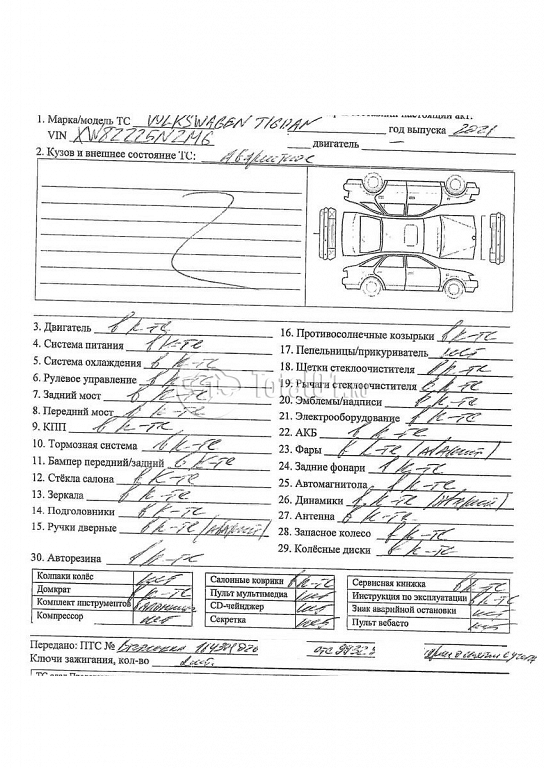 1. Марка/модель ТС VOLKSWAGEN TIGUAN
VIN XW8ZZZ5NZMG двигатель — год выпуска 2021
2. Кузов и внешнее состояние ТС: Аварийное
3. Двигатель в к-те
4. Система питания в к-те
5. Система охлаждения в к-те
6. Рулевое управление в к-те
7. Задний мост в к-те
8. Передний мост в к-те
9. КПП в к-те
10. Тормозная система в к-те
11. Бампер передний/задний в к-те
12. Стёкла салона в к-те
13. Зеркала в к-те
14. Подголовники в к-те
15. Ручки дверные в к-те
16. Противосолнечные козырьки в к-те
17. Пепельницы/прикуриватель нет
18. Щетки стеклоочистителя в к-те
19. Рычаги стеклоочистителя в к-те
20. Эмблемы/надписи в к-те
21. Электрооборудование в к-те
22. АКБ в к-те
23. Фары в к-те
24. Задние фонари в к-те
25. Автомагнитола в к-те
26. Динамики в к-те
27. Антенна в к-те
28. Запасное колесо в к-те
29. Колёсные диски в к-те
30. Авторезина в к-те
Колпаки колёс нет
Домкрат в к-те
Комплект инструментов
Компрессор нет
Салонные коврики в к-те
Пульт мультимедиа нет
CD-чейнджер нет
Секретка нет
Сервисная книжка в к-те
Инструкция по эксплуатации в к-те
Знак аварийной остановки нет
Пульт вебасто нет
Передано: ПТС №
Ключи зажигания, кол-во